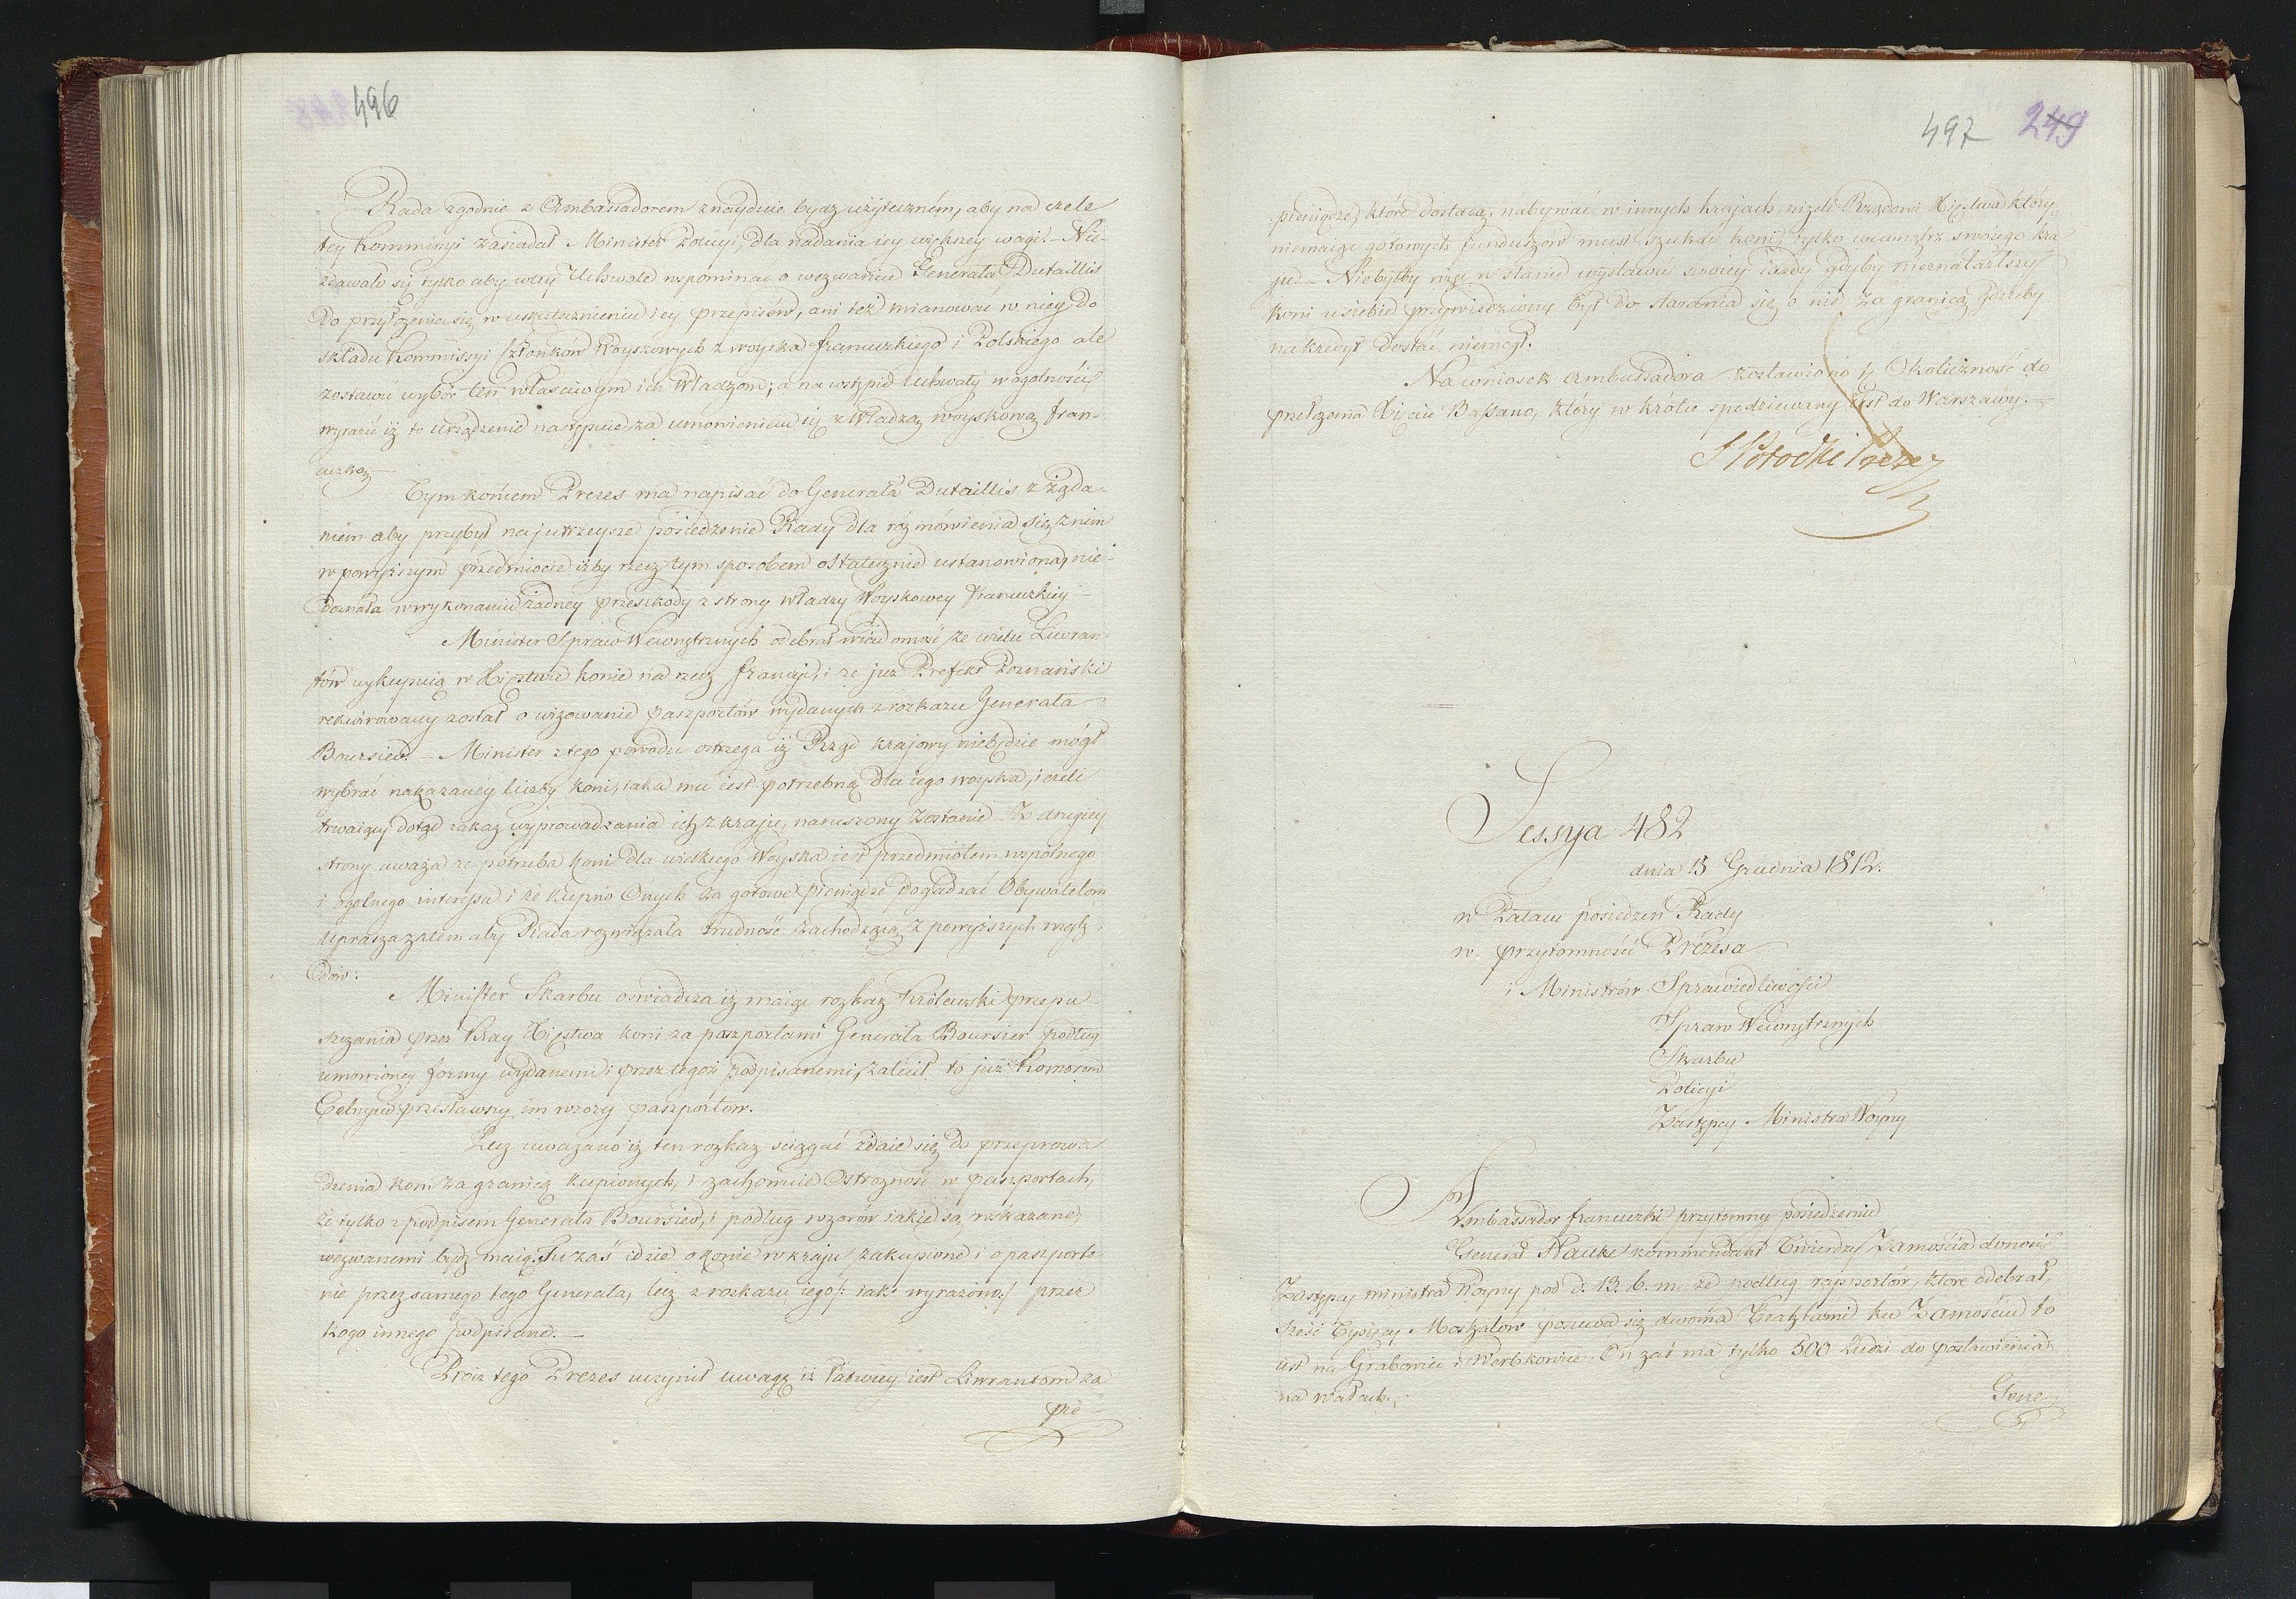 496
Rada zgodnie z Ambassadorem znayduie bydz użytecznem, aby na czele
tey Kommissyi zasiadał Minister Policyi, dla nadania iey większey wagi. - Nie-
zdawało się tylko aby w tey Uchwale wspominać o wezwaniu Generała Dutaillis
do przyłożenia się w uskutecznieniu iey przepisów, ani też mianować w niey do
składu Kommissyi Członków Woyskowych z woyska francuzkiego i Polskiego ale
zostawić wybór ten właściwym ich Władzom; a na wstępie uchwały w ogolności
wyrazić iż to urządzenie następuie za umowieniem się z Władzą woyskową fran-
cuzką
Tym końcem Prezes ma napisać do Generała Dutaillis z żąda-
niem aby przybył na jutrzeysze posiedzenie Rady dla rozmówienia się z nim
w powyższym przedmiocie iżby rzecz tym sposobem ostatecznie ustanowiona, nie-
doznała w wykonaniu żadney przeszkody z strony władzy Woyskowey francuzkiey -
Minister Spraw Wewnętrznych odebrał wiadomość że wielu Liwran-
tów wykupuią w Xięstwie konie na rzecz francyi, i że już Prefekt Poznański
rekwirowany został o wizowanie paszportów wydanych z rozkazu Generała
Boursier. - Minister z tego powodu ostrzega iż Rząd krajowy niebędzie mógł
wybrać nakazaney liczby koni, iaka mu iest potrzebną dla iego woyska, ieżeli
trwaiący dotąd zakaz wyprowadzania ich z kraju, naruszony zostanie - Z drugiey
strony uważa że potrzeba koni dla wielkiego Woyska iest przedmiotem wspólnego
i ogolnego interessu i że kupno Onych za gotowe pieniądze dogadzać Obywatelom
Uprasza zatem aby Rada rozwiązała trudność zachodzącą z powyższych wzglę-
dów.
Minister Skarbu oswiadcza iż maiąc rozkaz Królewski przepu-
szczania przez Kray Xięstwa koni za paszportami Generała Boursier podług
umowioney formy wydanemi i przez tegoż podpisanemi, zalecił to już Komorom
Celnym przesławszy im wzory paszportów.
Lecz uważano iż ten rozkaz ściągać zdaie się do przeprowa-
dzenia koni za granicą kupionych, i zachowuie Ostrozność w paszportach,
że tylko z podpisem Generała Boursier, i podług wzorów iakie są wskazane,
wizowanemi bydź maią. Tu zaś idzie o konie w kraju zakupione i o paszporta
nie przez samego tego Generała, lecz z rozkazu iego /: iak wyrażono :/ przez
kogo innego podpisane. -
Prócz tego Prezes uczynił uwagę iż łatwiey iest Liwrantom za
pie-
497 249
pieniądze, które dostaią, nabywać w innych krajach, niżeli Rządowi Xięstwa który
niemaiąc gotowych funduszów musi szukać koni, tylko wewnątrz swoiego kra-
ju - Niebyłby więc w stanie wystawić swoiey iazdy gdyby nieznalazłszy
koni u siebie przywiedziony był do starania się o nie za granicą, gdzieby
na kredyt dostać niemógł.
Na wniosek Ambassadora zostawiono tę Okoliczność do
przełożenia Xięciu Bassano, który w krótce spodziewany iest do Warszawy. -
S Potocki Prezes
Sessya 482
dnia 15 Grudnia 1812.
w Pałacu posiedzeń Rady
w przytomności Prezesa
i Ministrów Sprawiedliwości
Spraw Wewnętrznych
Skarbu
Policyi
Zastępcy Ministra Woyny
Ambassador francuzki przytomny posiedzeniu
Generał Hauke kommendant Twierdzy Zamościa donosi
Zastępcy ministra Woyny pod d. 13. b. m. że podług rapportów, które odebrał,
sześć Tysięcy Moskalów posuwa się dwoma Traktami ku Zamościowi to
iest na Grabowiec i Werbkowice. On zaś ma tylko 500 Ludzi do postawienia
na wałach.
Gene-